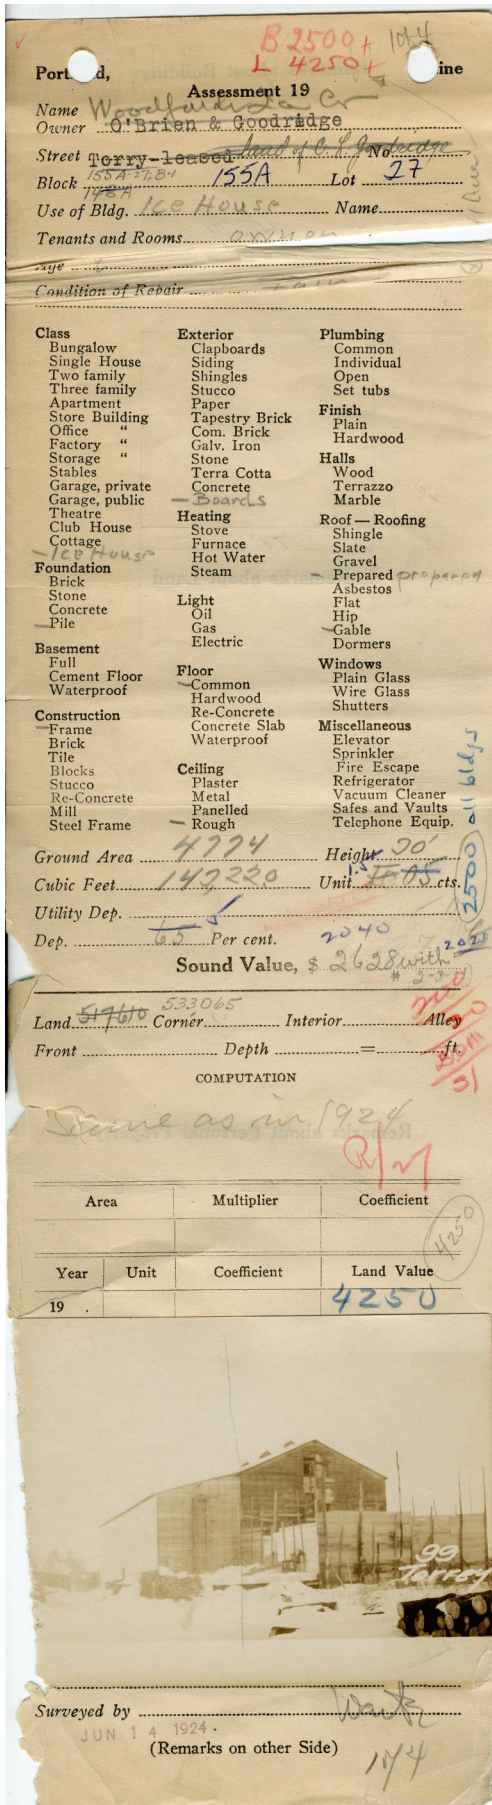 B 2500+ 1 of 4
L 4250+
Port d, ine
Assessment 19
Name Woodfords Ice Co
Owner O'Brien & Goodridge
Street Torry-leased land of C. L. Goodridge No.
155A-27-B-1
Block 148A 155A Lot 27
Use of Bldg. Ice House Name
Tenants and Rooms owner
Age
Condition of Repair Fair
Class
Bungalow
Single House
Two family
Three family
Apartment
Store Building
Office "
Factory "
Storage "
Stables
Garage, private
Garage, public
Theatre
Club House
Cottage
- Ice House
Foundation
Brick
Stone
Concrete
- Pile
Basement
Full
Cement Floor
Waterproof
Construction
- Frame
Brick
Tile
Blocks
Stucco
Re-Concrete
Mill
Steel Frame
Exterior
Clapboards
Siding
Shingles
Stucco
Paper
Tapestry Brick
Com. Brick
Galv. Iron
Stone
Terra Cotta
Concrete
- Boards
Heating
Stove
Furnace
Hot Water
Steam
Light
Oil
Gas
Electric
Floor
- Common
Hardwood
Re-Concrete
Concrete Slab
Waterproof
Ceiling
Plaster
Metal
Panelled
- Rough
Plumbing
Common
Individual
Open
Set tubs
Finish
Plain
Hardwood
Halls
Wood
Terrazzo
Marble
Roof — Roofing
Shingle
Slate
Gravel
- Prepared prepared
Asbestos
Flat
Hip
- Gable
Dormers
Windows
Plain Glass
Wire Glass
Shutters
Miscellaneous
Elevator
Sprinkler
Fire Escape
Refrigerator
Vacuum Cleaner
Safes and Vaults
Telephone Equip.
2500 all bldgs
Ground Area 4774 Height 30'
Cubic Feet 143220 Unit 1.5 05 cts.
Utility Dep.
Dep. 65 Per cent. 2040
Sound Value, $ 2628 with 2025
# 2-3-4
Land 517610 533065 Corner Interior Alley
Front Depth = ft.
31
COMPUTATION
Same as in 1924
Area Multiplier Coefficient
4250
Year Unit Coefficient Land Value
19 . 4250
99
Torrey
Surveyed by
JUN 14 1924.
(Remarks on other Side)
1 of 4